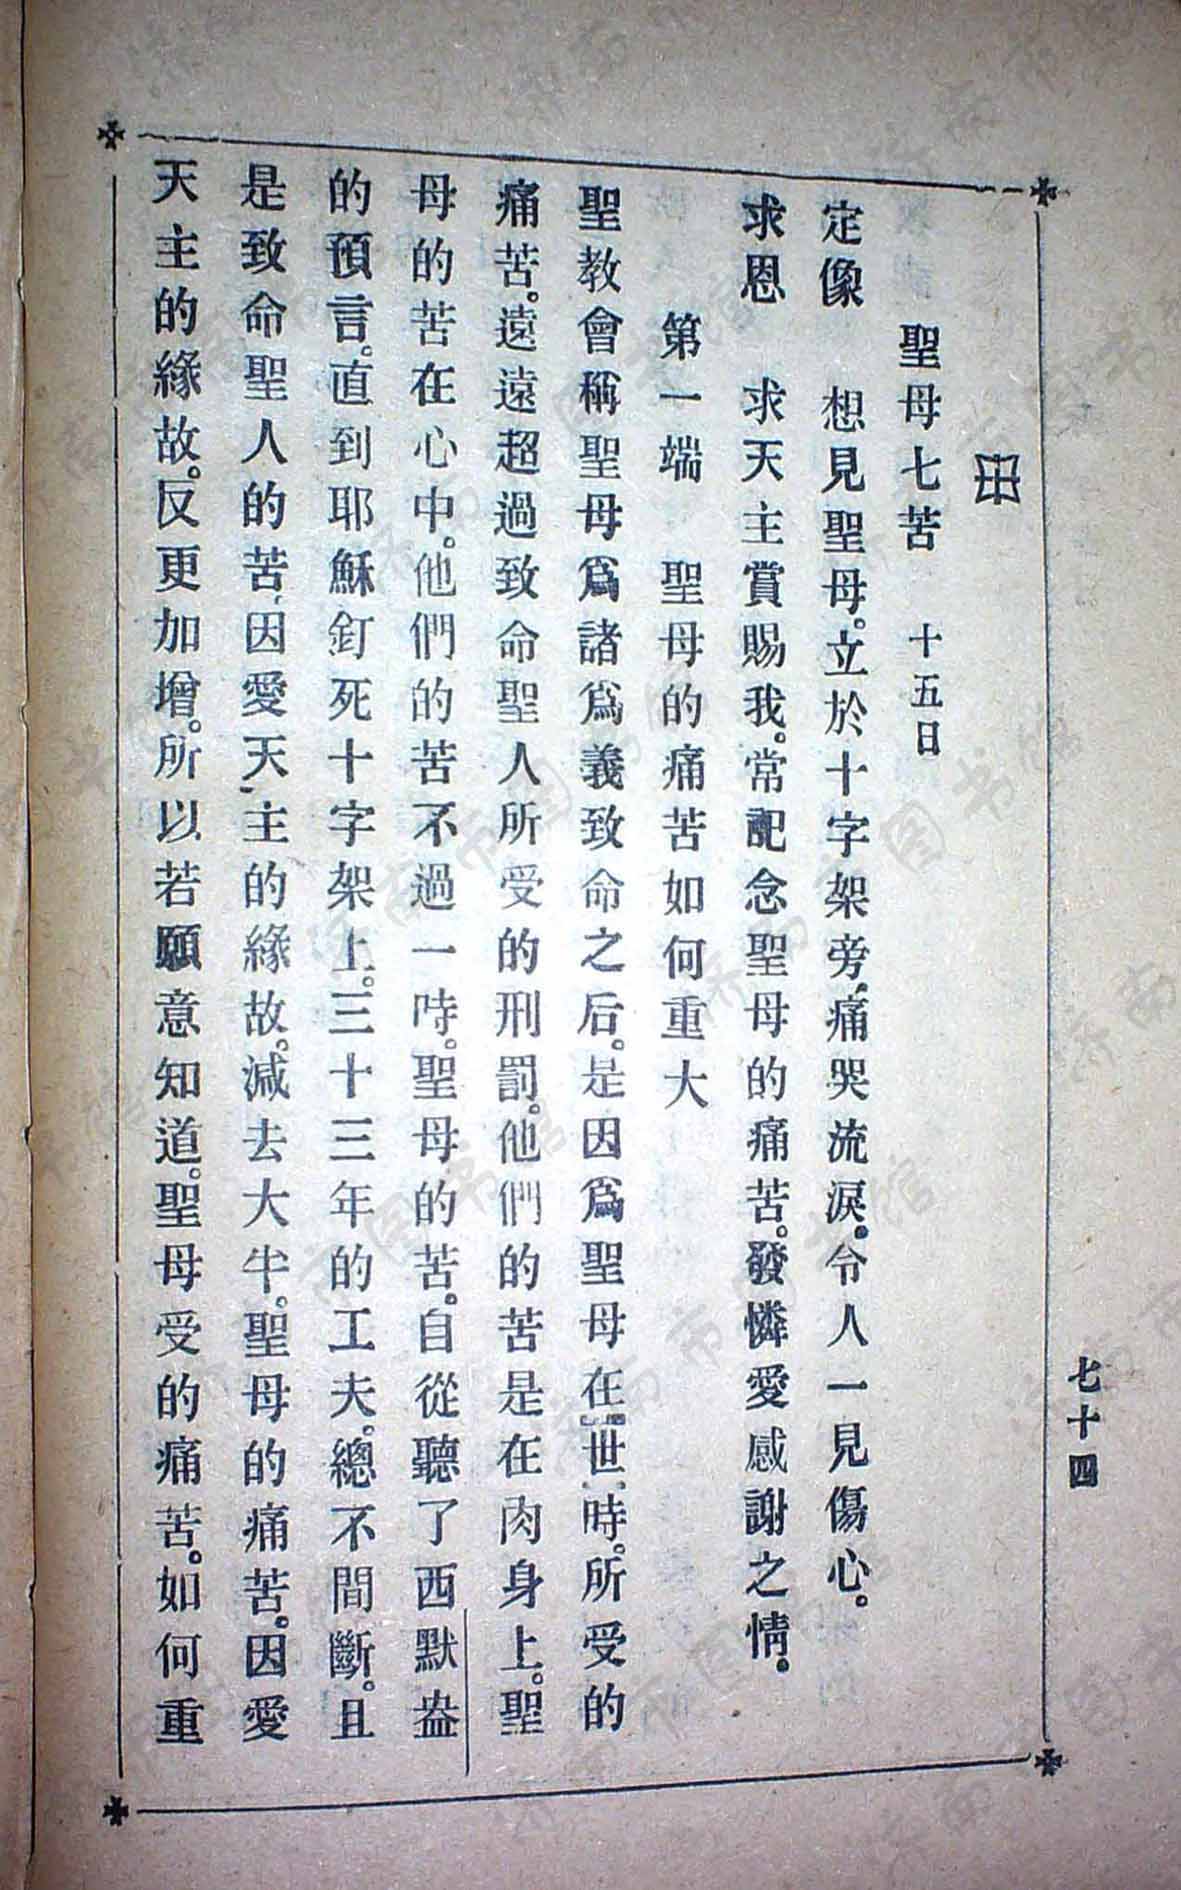 七十四
聖母七苦　十五日
定像　想見聖母。立於十字架旁、痛哭流淚。令人一見傷心。
求恩　求天主賞賜我。常記念聖母的痛苦。發憐愛感謝之情。
第一端　聖母的痛苦如何重大
聖教會稱聖母爲諸爲義致命之后。是因爲聖母在世時。所受的
痛苦。遠遠超過致命聖人所受的刑罰。他們的苦是在肉身上。聖
母的苦在心中。他們的苦不過一時。聖母的苦。自從聽了西默盎
的預言。直到耶穌釘死十字架上。三十三年的工夫。總不間斷。且
是致命聖人的苦、因愛天主的緣故。減去大半。聖母的痛苦。因愛
天主的緣故。反更加增。所以若願意知道。聖母受的痛苦。如何重